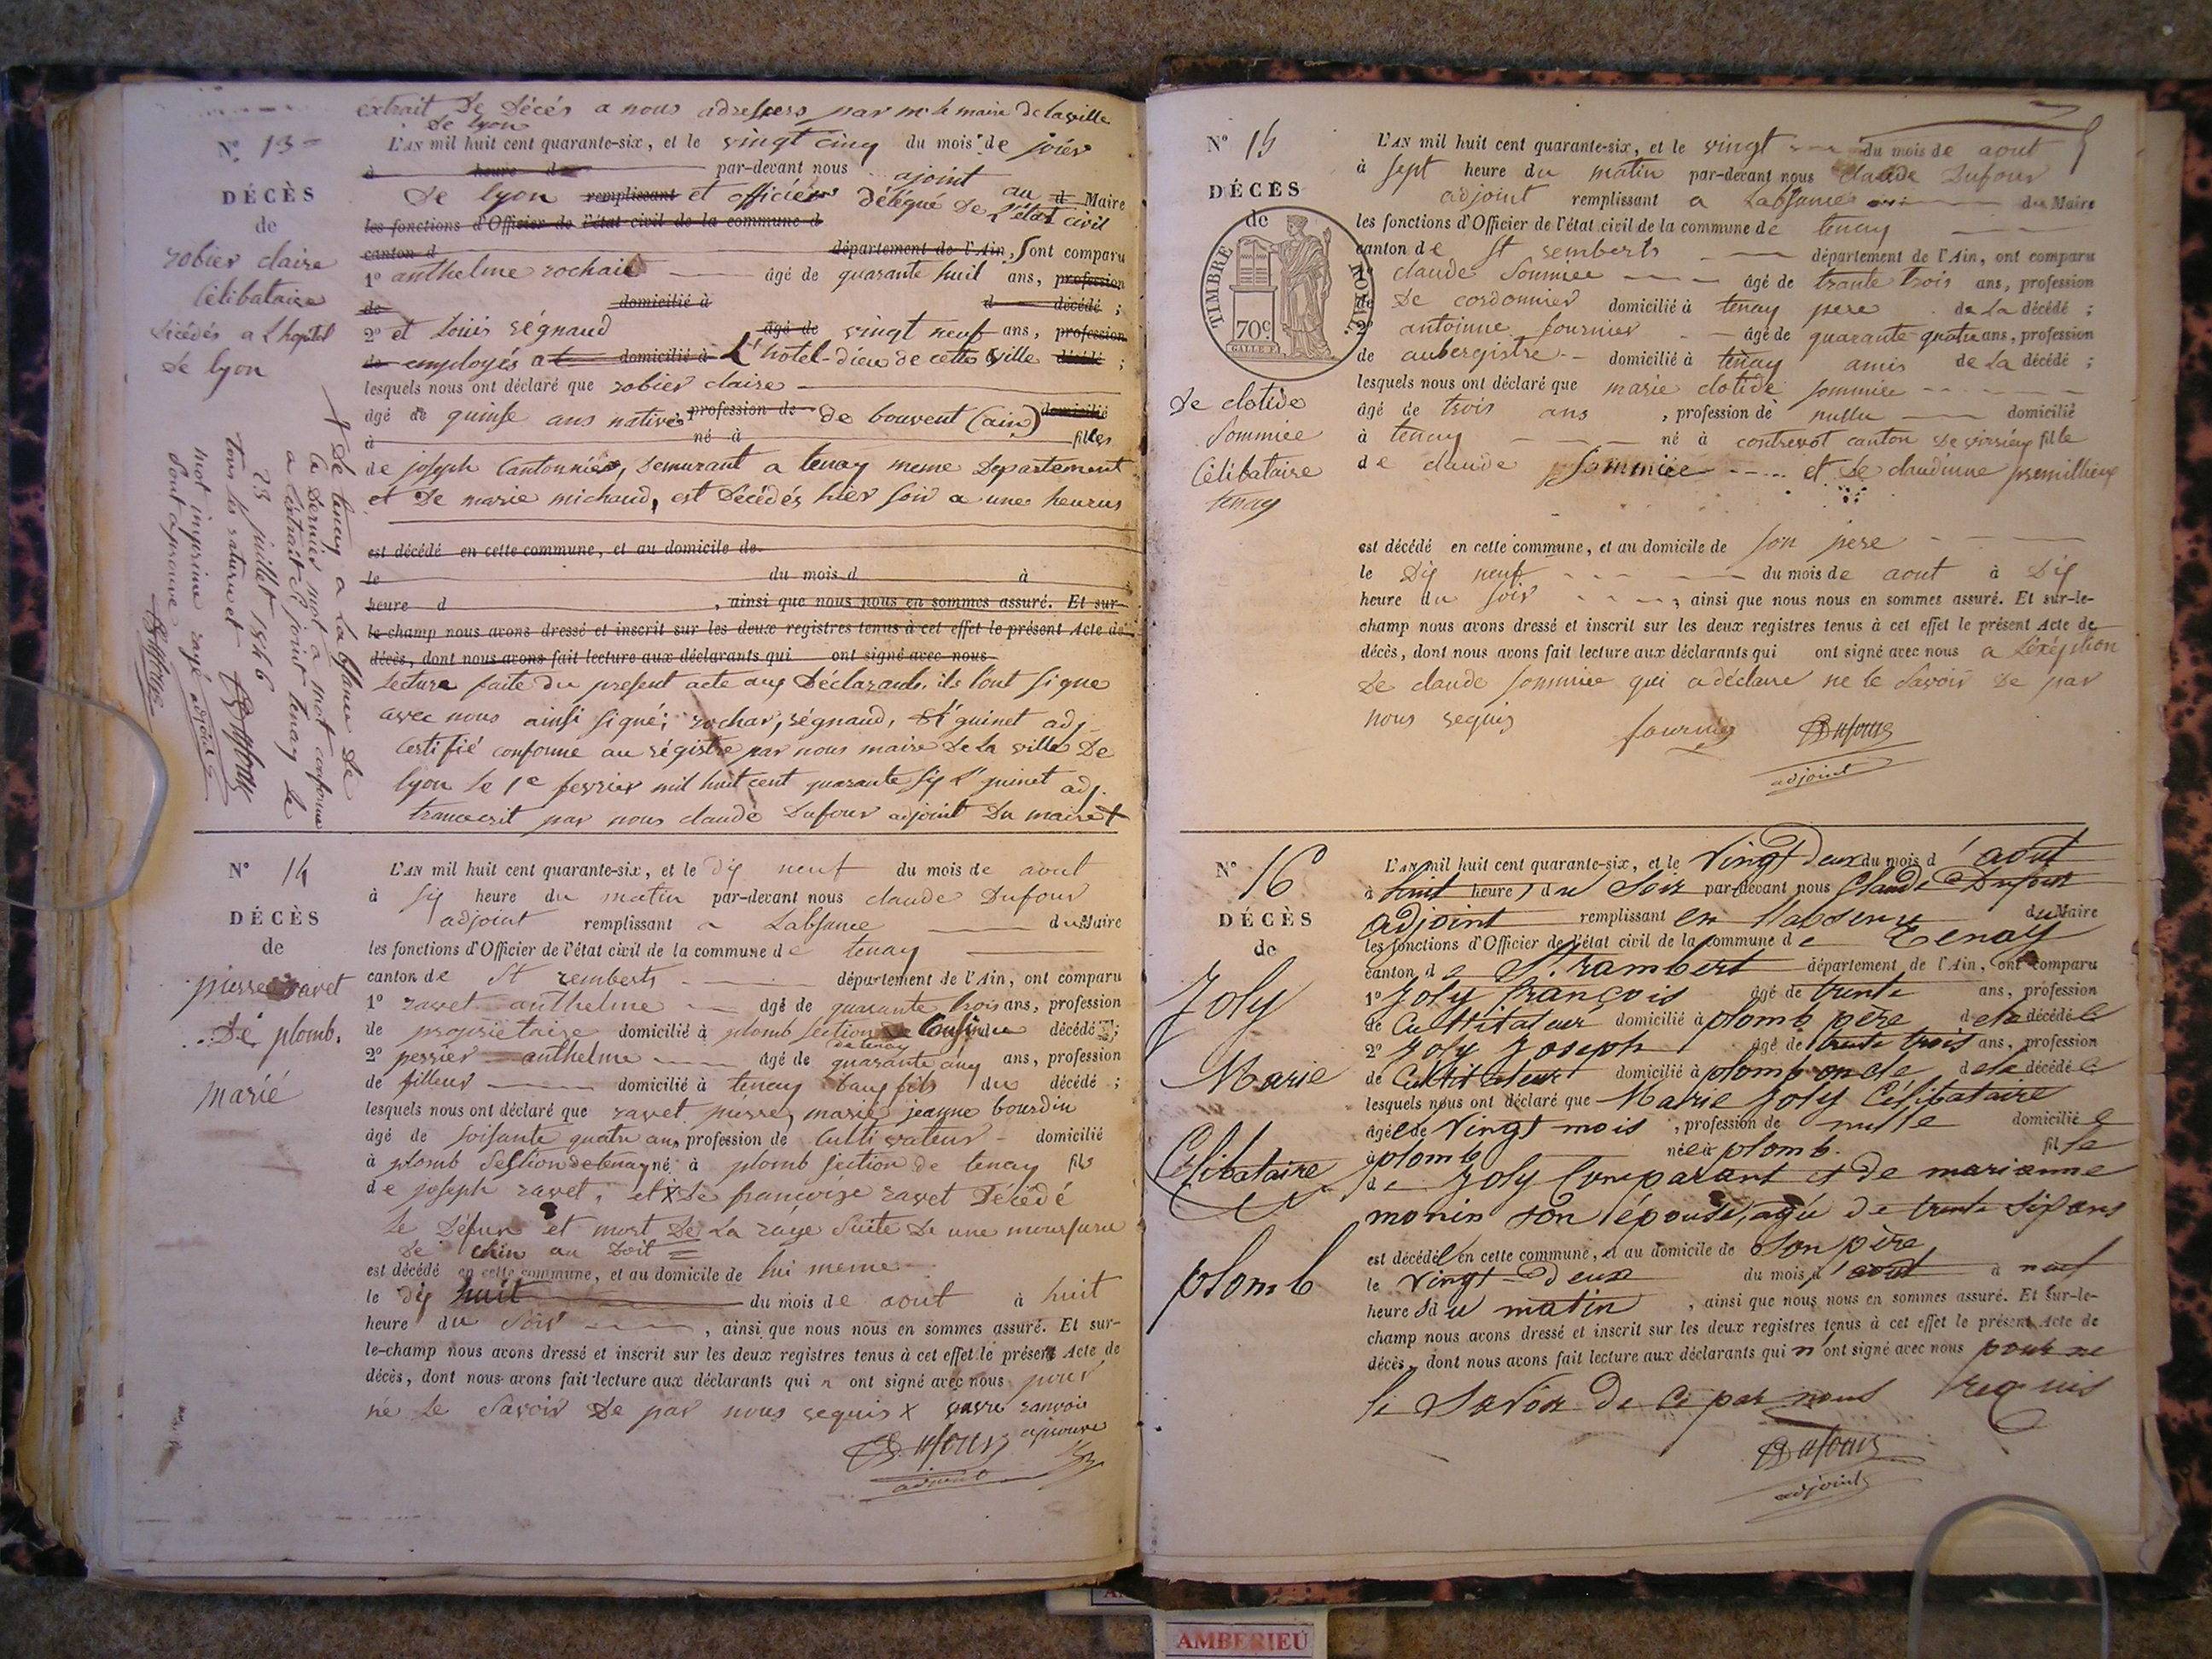 extrait De Décés a nous adressers par mr le maire De la ville
De lyon
N° 13
DÉCÈS
de
robier claire
Célibataire
décédés a L'hopital
De lyon
L'AN mil huit cent quarante-six, et le vingt cinq du mois de
à heure d par-devant nous ajoint
De lyon remplissant et officier délégue De L'état civil au d Maire
les fonctions d'Officier de l'état civil de la commune d
canton d département de l'Ain, sont comparu
1° anthelme rochair âgé de quarante huit ans, profession
de domicilié à d décédé ;
2° et Louis régnaud âgé de vingt neuf ans, profession
de employés a domicilié à L'hotel-dieu de cette ville décédé ;
lesquels nous ont déclaré que robier claire
âgé de quinse ans natives profession de de bouvent (ain) domicilié
à né à filles
de joseph Cantonnier, Demurant a tenay meme Departement
et De marie michaud, est décédés hier soir a une heures
est décédé en cette commune, et au domicile de
le du mois d à
heure d , ainsi que nous nous en sommes assuré. Et sur-
le-champ nous avons dressé et inscrit sur les deux registres tenus à cet effet le présent Acte de
décès, dont nous avons fait lecture aux déclarants qui ont signé avec nous
Lecture faite du present acte aux Déclarants, ils l'ont signe
avec nous ainsi signé; rochar, régnaud, guinet adj
Certifié conforme au régistre par nous maire De La ville De
lyon le 1e fevrier mil huit cent quarante six guinet adj.
transcrit par nous claude Dufour adjoint Du maire +
+ De tenay a La bsance De
Ce Dernier mot a mot conforme
a L'extrait si joint tenay le
23 juillet 1846
tous les rature et
mot inprime rayé
sont aprouve
Dufour
adjoint
N° 14
DÉCÈS
de
pierre ravet
De plomb.
marié
L'AN mil huit cent quarante-six, et le dix neuf du mois de aout
à six heure du matin par-devant nous claude Dufour
adjoint remplissant a Labsance du Maire
les fonctions d'Officier de l'état civil de la commune de tenay
canton de St remberts département de l'Ain, ont comparu
1° ravet anthelme âgé de quarante trois ans, profession
de propriétaire domicilié à plomb section Cousin du décédé ;
de tenay
2° perrier anthelme âgé de quarante cinq ans, profession
de filleur domicilié à tenay baux fils du décédé ;
lesquels nous ont déclaré que ravet pierre, marié jeanne bourdin
âgé de soisante quatre ans profession de Cultivateur domicilié
à plomb Section de tenay né à plomb section de tenay fils
de joseph ravet, et x De françoise ravet Décédé
Le Défun et mort De La rage suite De une moursure
De chin au Doit
est décédé en cette commune, et au domicile de lui meme
le dix huit du mois de aout à huit
heure du soir , ainsi que nous nous en sommes assuré. Et sur-
le-champ nous avons dressé et inscrit sur les deux registres tenus à cet effet le présent Acte de
décès, dont nous avons fait lecture aux déclarants qui n ont signé avec nous pour
né Le Savoir De par nous requis x ranvoir
aprouve
Dufour
adjoint
N° 15
DÉCÈS
de
TIMBRE ROYAL
70c.
GALLE F.
De clotide
Sommiee
Célibataire
tenay
L'AN mil huit cent quarante-six, et le vingt du mois de aout
à sept heure du matin par-devant nous claude Dufour
adjoint remplissant a Labsance du Maire
les fonctions d'Officier de l'état civil de la commune de tenay
canton de St remberts département de l'Ain, ont comparu
1° claude Sommiee âgé de trante trois ans, profession
de De cordonnier domicilié à tenay pere de La décédé ;
2° antoinne fournier âgé de quarante quatre ans, profession
de aubergistre domicilié à tenay amis de La décédé ;
lesquels nous ont déclaré que marie clotide sommiee
âgé de trois ans , profession de nulle domicilié
à tenay né à contrevot canton De virieux fille
de claude Sommiée et De claudinne premillieux
est décédé en cette commune, et au domicile de son pere
le Dix neuf du mois de aout à Dix
heure du soir , ainsi que nous nous en sommes assuré. Et sur-le-
champ nous avons dressé et inscrit sur les deux registres tenus à cet effet le présent Acte de
décès, dont nous avons fait lecture aux déclarants qui ont signé avec nous a L'exéption
De claude sommiee qui a déclare ne le Savoir De par
nous requis fournier Dufour
adjoint
N° 16
DÉCÈS
de
Joly
Marie
Célibataire
plomb
L'AN mil huit cent quarante-six, et le Vingt Deux du mois d'aout
à huit heure, du Soir par-devant nous Claude Dufour
adjoint remplissant en l'absence du Maire
les fonctions d'Officier de l'état civil de la commune de Tenay
canton de St. rambert département de l'Ain, ont comparu
1° Joly françois âgé de trente ans, profession
de Cultivateur domicilié à plomb père de la décédée
2° Joly Joseph âgé de trente trois ans, profession
de Cultivateur domicilié à plomb oncle de la décédée
lesquels nous ont déclaré que Marie Joly Célibataire
âgée de Vingt mois , profession de nulle domiciliée
à plomb née à plomb. fille
de Joly Comparant et de marianne
monin son épouse, agée de trente six ans
est décédée en cette commune, et au domicile de Son père
le Vingt Deux du mois d'aout à neuf
heure du matin , ainsi que nous nous en sommes assuré. Et sur-le-
champ nous avons dressé et inscrit sur les deux registres tenus à cet effet le présent Acte de
décès, dont nous avons fait lecture aux déclarants qui n'ont signé avec nous pour ne
le Savoir De Ce par nous requis
Dufour
adjoint
AMBERIEU